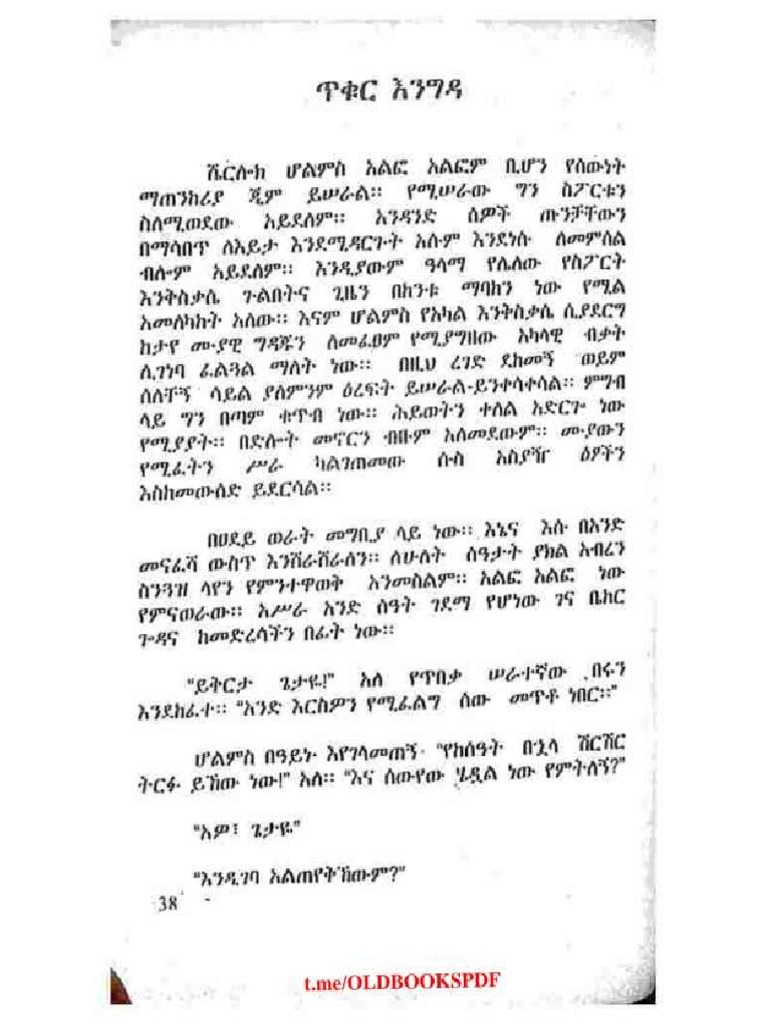 ጥቁር እንግዳ
ሼርሎክ ሆልምስ አልፎ አልፎም ቢሆን የሰውነት
ማጠንከሪያ ጂም ይሠራል። የሚሠራው ግን ስፖርቱን
ስለሚወደው አይደለም። አንዳንድ ሰዎች ጡንቻቸውን
በማሳበጥ ለእይታ እንደሚዳርጉት እሱም እንደነሱ ለመምሰል
ብሎም አይደለም። እንዲያውም ዓላማ የሌለው የስፖርት
እንቅስቃሴ ጉልበትና ጊዜን በከንቱ ማባከን ነው የሚል
አመለካከት አለው። እናም ሆልምስ የአካል እንቅስቃሴ ሲያደርግ
ከታየ ሙያዊ ግዳጁን ለመፈፀም የሚያግዘው አካላዊ ብቃት
ሊገነባ ፈልጓል ማለት ነው። በዚህ ረገድ ደከመኝ ወይም
ሰለቸኝ ሳይል ያለምንም ዕረፍት ይሠራል-ይንቀሳቀሳል። ምግብ
ላይ ግን በጣም ቁጥብ ነው። ሕይወትን ቀለል አድርጎ ነው
የሚያያት። በድሎት መኖርን ብዙም አለመደውም። ሙያውን
የሚፈትን ሥራ ካልገጠመው ሱስ አስያዥ ዕፆችን
እስከመውሰድ ይደርሳል።
በፀደይ ወራት መግቢያ ላይ ነው። እኔና እሱ በአንድ
መናፈሻ ውስጥ እንሸራሸራለን። ለሁለት ሰዓታት ያክል አብረን
ስንጓዝ ላየን የምንተዋወቅ አንመስልም። አልፎ አልፎ ነው
የምናወራው። አሥራ አንድ ሰዓት ገደማ የሆነው ገና ቤከር
ጐዳና ከመድረሳችን በፊት ነው።
"ይቅርታ ጌታዬ!" አለ የጥበቃ ሠራተኛው በሩን
እንደከፈተ። "አንድ እርስዎን የሚፈልግ ሰው መጥቶ ነበር።"
ሆልምስ በዓይኑ እየገላመጠኝ "የከሰዓት በኋላ ሽርሽር
ትርፉ ይኸው ነው!" አለ። "እና ሰውየው ሄዷል ነው የምትለኝ?"
"አዎ፣ ጌታዬ"
"እንዲገባ አልጠየቅኸውም?"
38
t.me/OLDBOOKSPDF